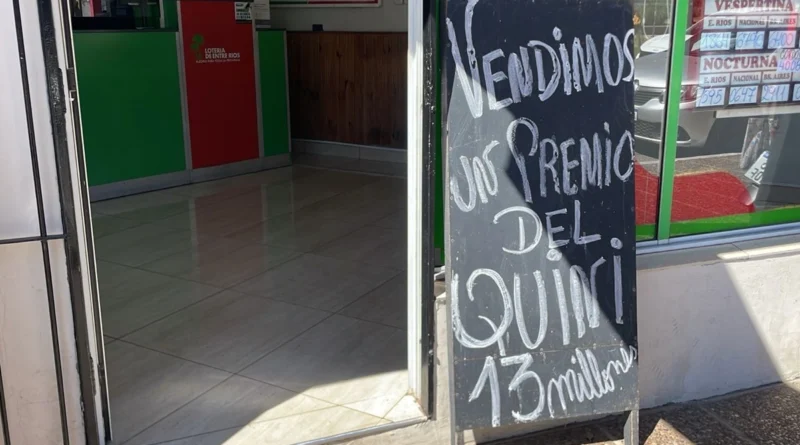 LOTERIA
DE ENTRE RIOS
VENDIMOS
UN PREMIO
DEL
QUINI
13 millones
VESPERTINA
E. RIOS NACIONAL BS. AIRES
NOCTURNA
E. RIOS NACIONAL BS. AIRES